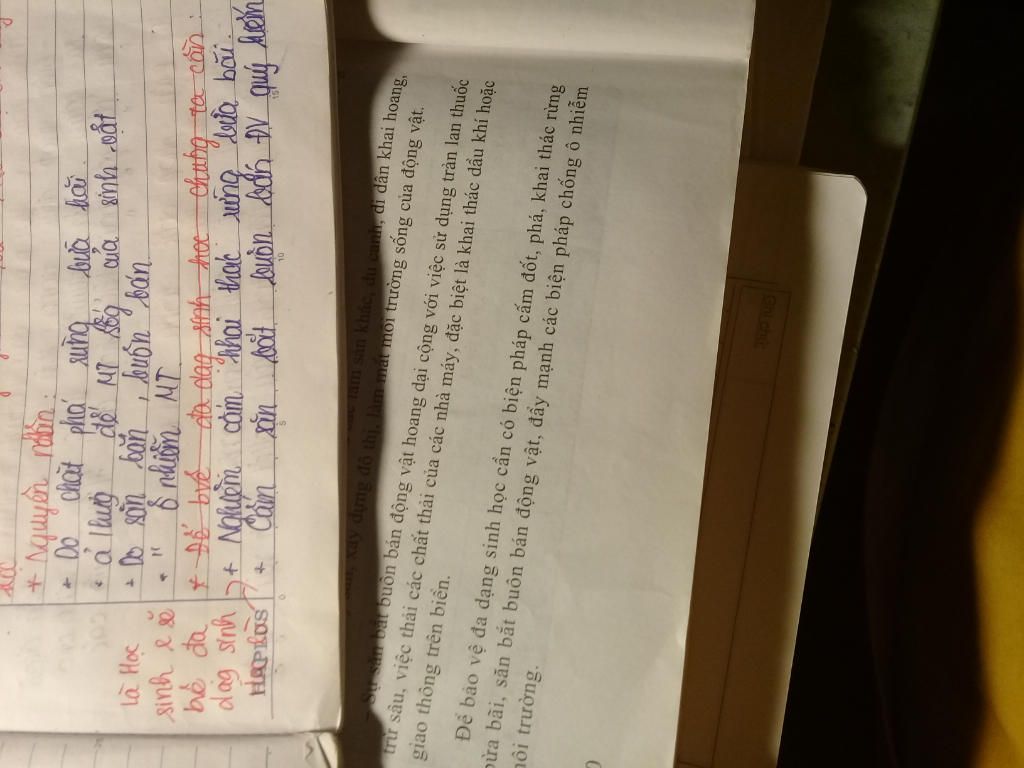 + Nguyên nhân:
+ Do chặt phá rừng bừa bãi
+ ả hưg đề MT sốg của sinh vật
+ Do săn bắn, buôn bán
+ " ô nhiễm MT
* Để bvệ đa dạng sinh học chúng ta cần:
+ Nghiêm cấm khai thác rừng bừa bãi.
+ Cấm săn bắt buôn bán ĐV quý hiếm
là Học
sinh e sẽ
bvệ đa
dạg sinh
Hapilus
xây dựng đô thị, làm mất môi trường sống của động vật.
lâm sản khác, du canh, di dân khai hoang,
– Sự săn bắt buôn bán động vật hoang dại cộng với việc sử dụng tràn lan thuốc
trừ sâu, việc thải các chất thải của các nhà máy, đặc biệt là khai thác dầu khí hoặc
giao thông trên biển.
Để bảo vệ đa dạng sinh học cần có biện pháp cấm đốt, phá, khai thác rừng
bừa bãi, săn bắt buôn bán động vật, đẩy mạnh các biện pháp chống ô nhiễm
môi trường.